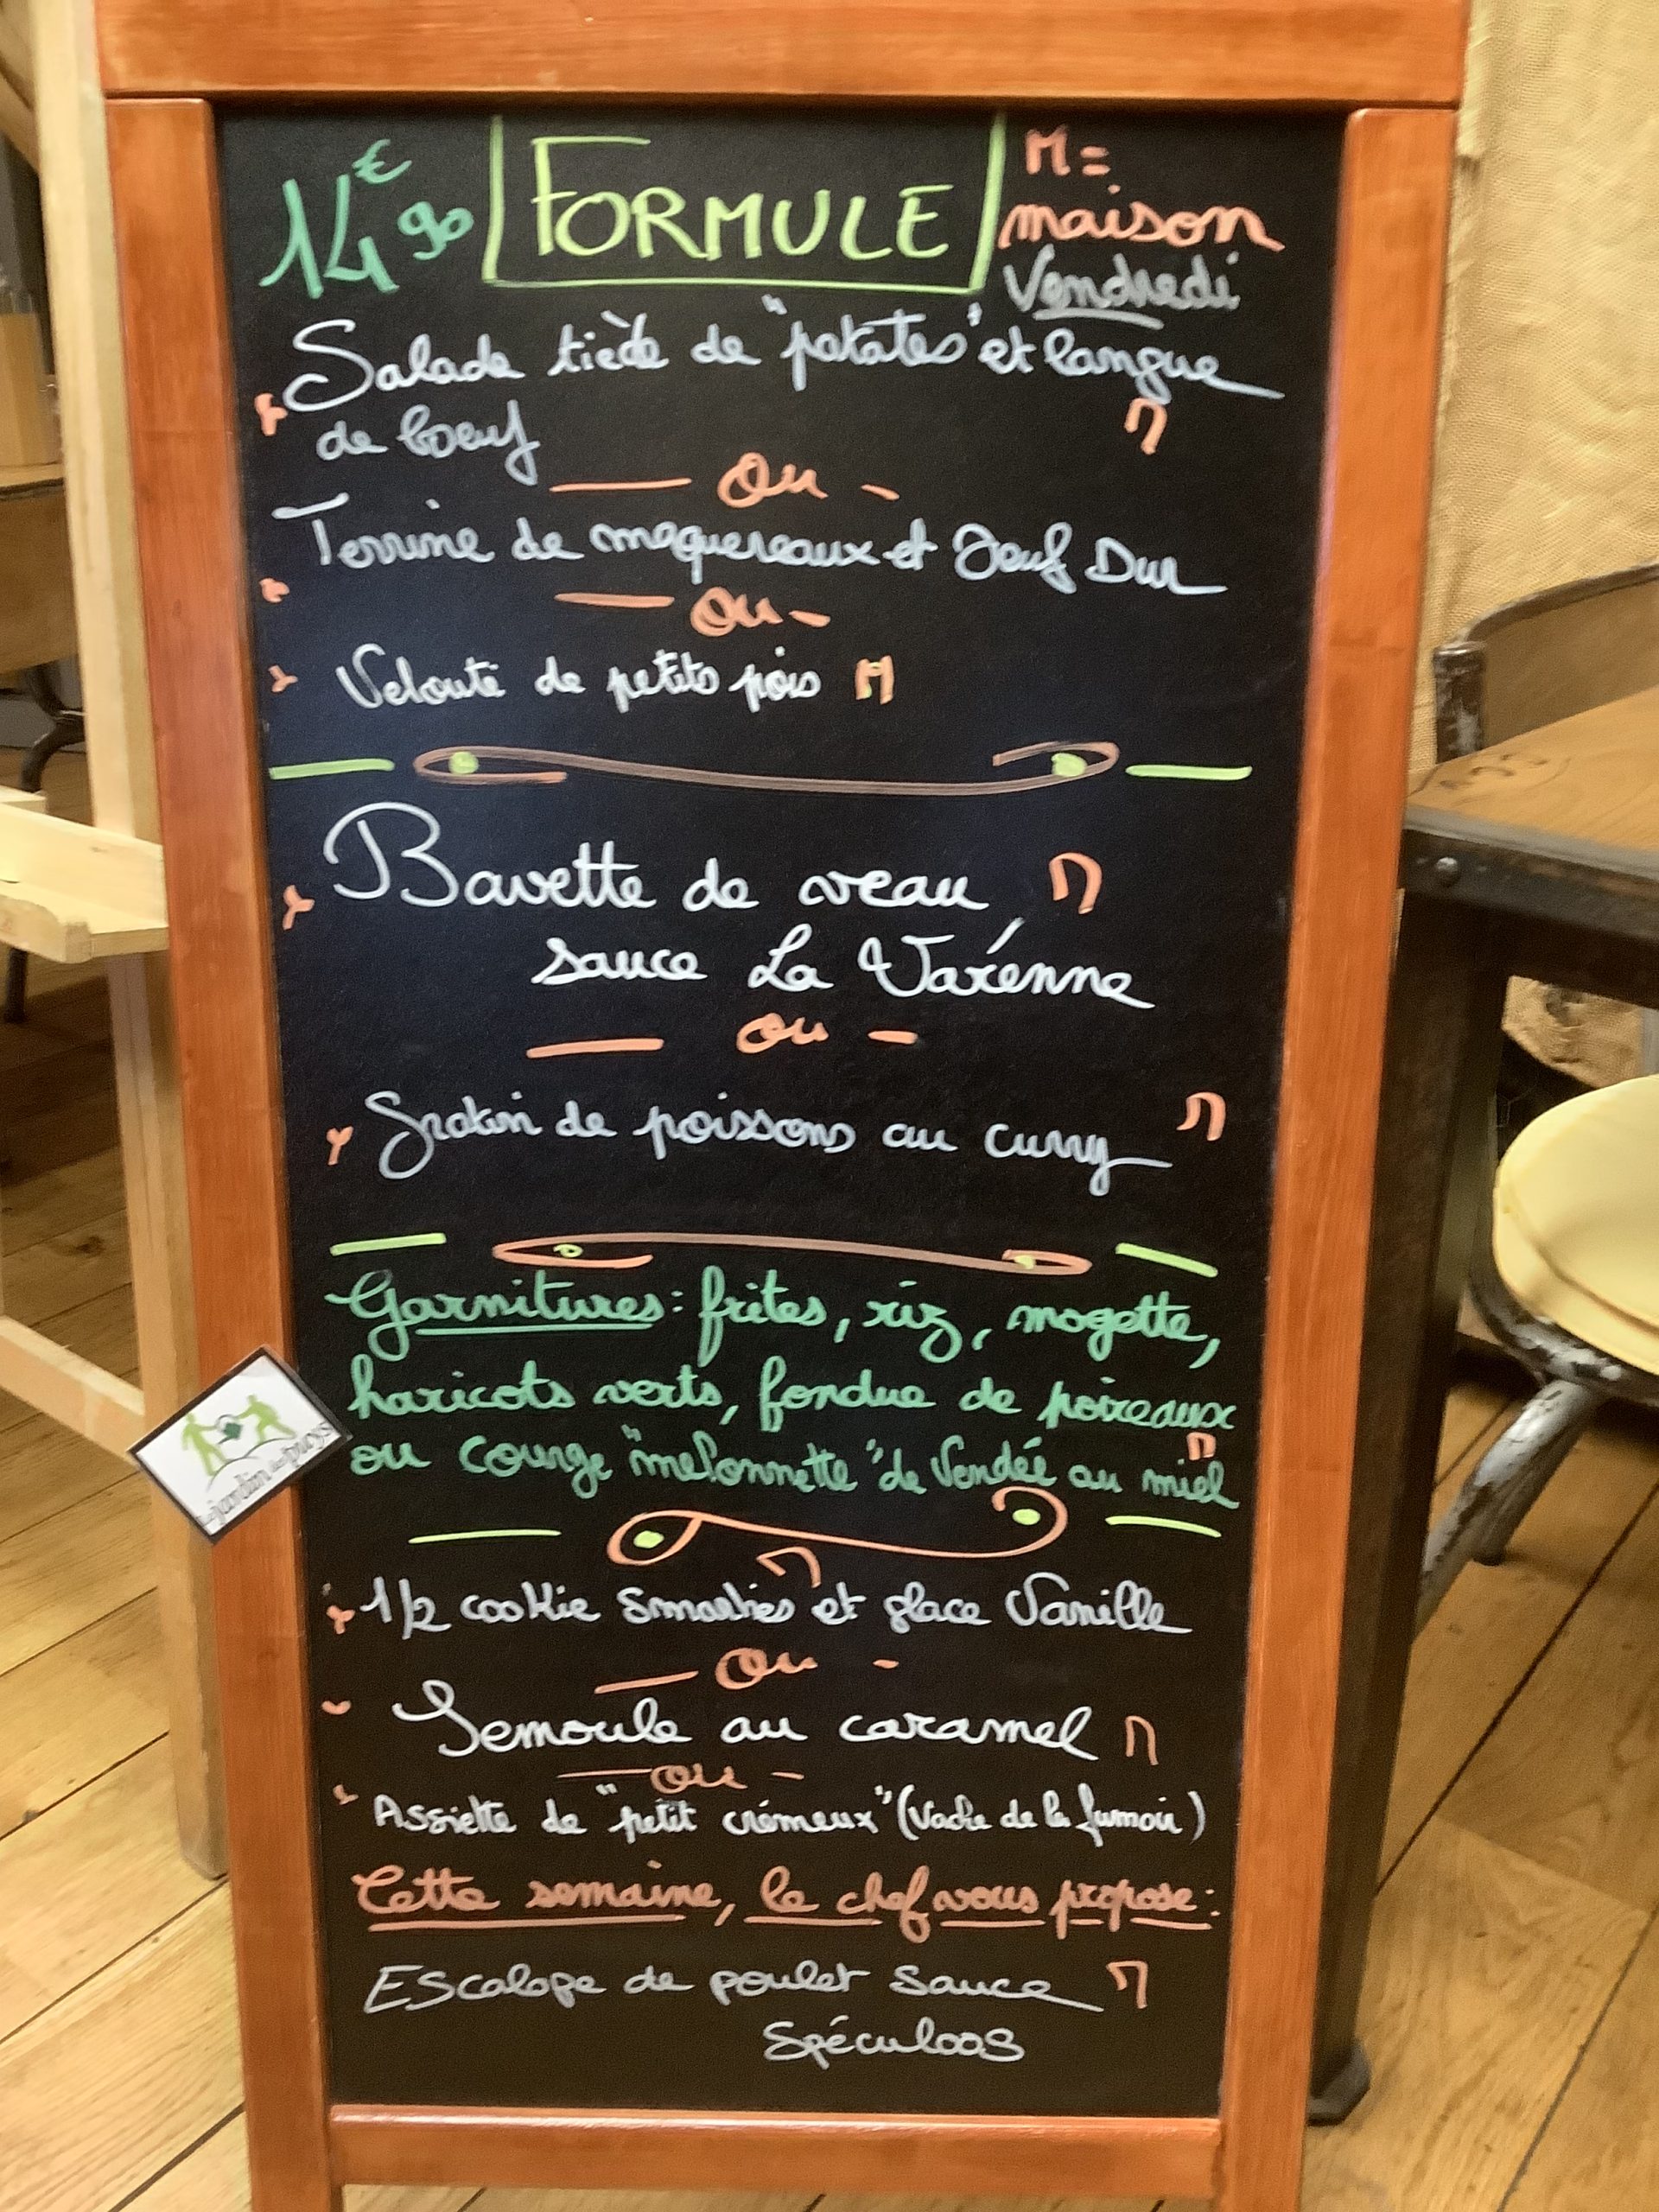 14€90 FORMULE M =
maison
Vendredi
Salade tiède de "patates" et langue
de boeuf M
Ou
Terrine de maquereaux et Oeuf Dur
Ou
Velouté de petits pois M
Bavette de veau M
sauce La Varénne
ou
Gratin de poissons au curry M
Garnitures : frites, riz, mogette,
haricots verts, fondue de poireaux
ou courge "melonnette" de Vendée au miel M
1/2 cookie Smarties et glace Vanille M
Ou
Semoule au caramel M
ou
Assiette de "petit crémeux" (Vache de la fumoir)
Cette semaine, le chef vous propose :
Escalope de poulet sauce M
Spéculoos
Le jardin des pays